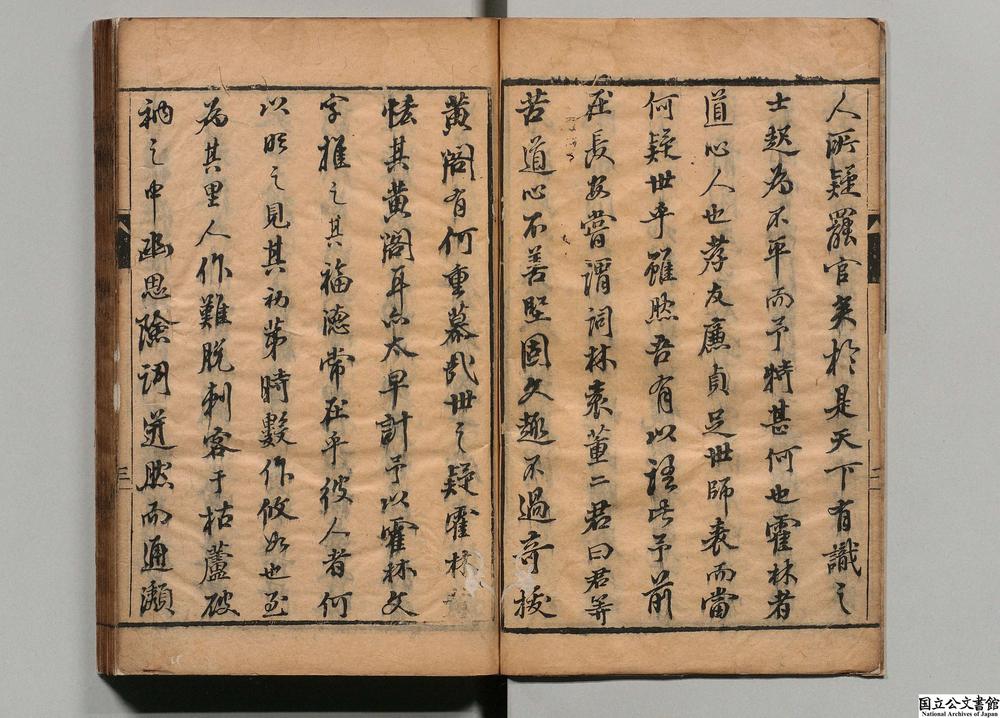 人所疑罷官矣於是天下有識之
士起為不平而予特甚何也霍林者
道心人也孝友廉貞足世師表而當
何疑世乎雖然吾有以語此予前
在長安嘗謂詞林袁董二君曰君等
苦道心不善堅固文趣不過奇拔
黃閣有何重慕哉世之疑霍林
怯其黃閣耳亦太早計予以霍林文
字推之其福德常在乎彼人者何
以明之見其初第時數作攸如也至
為其里人作難脫刺客于枯蘆破
衲之中幽思險詞迸然而通瀕
二
三
国立公文書館
National Archives of Japan